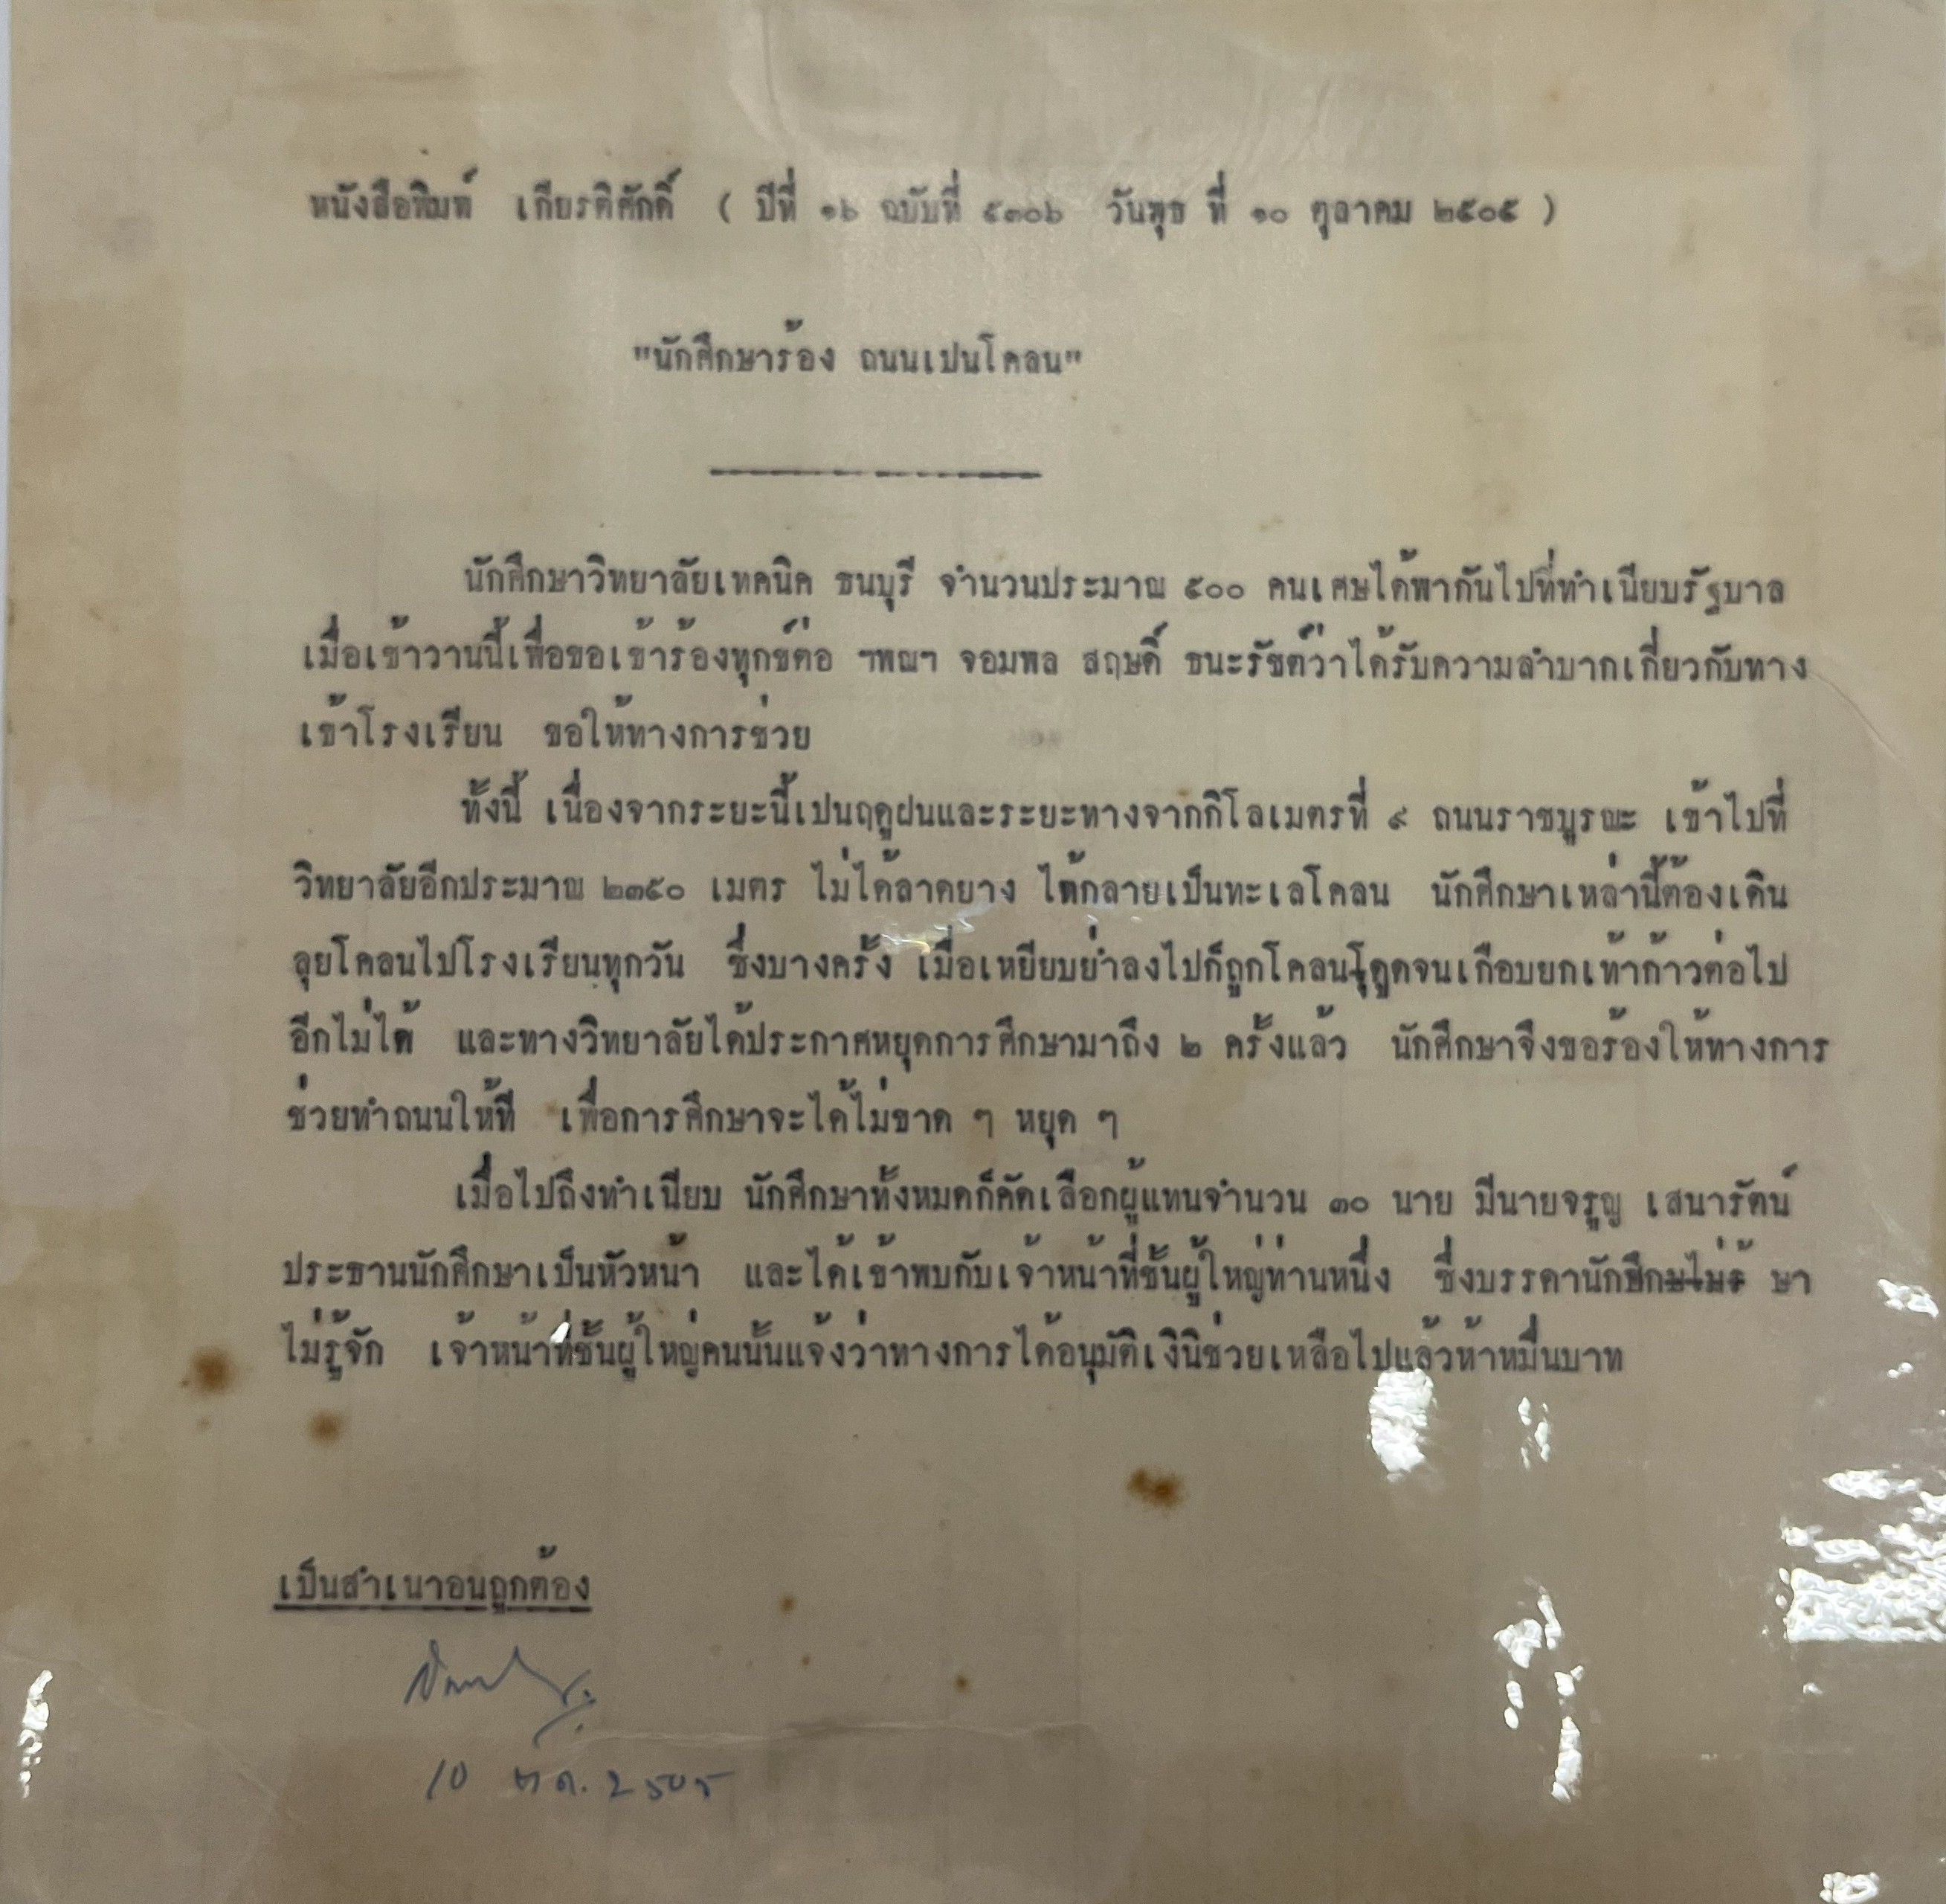 หนังสือพิมพ์ เกียรติศักดิ์ ( ปีที่ ๑๖ ฉบับที่ ๕๓๐๖ วันพุธ ที่ ๑๐ ตุลาคม ๒๕๐๕ )
"นักศึกษาร้อง ถนนเปนโคลน"
นักศึกษาวิทยาลัยเทคนิค ธนบุรี จำนวนประมาณ ๕๐๐ คนเศษได้พากันไปที่ทำเนียบรัฐบาล
เมื่อเช้าวานนี้เพื่อขอเข้าร้องทุกข์ต่อ ฯพณฯ จอมพล สฤษดิ์ ธนะรัชต์ว่าได้รับความลำบากเกี่ยวกับทาง
เข้าโรงเรียน ขอให้ทางการช่วย
ทั้งนี้ เนื่องจากระยะนี้เปนฤดูฝนและระยะทางจากกิโลเมตรที่ ๙ ถนนราชบูรณะ เข้าไปที่
วิทยาลัยอีกประมาณ ๒๓๕๐ เมตร ไม่ได้ลาดยาง ได้กลายเป็นทะเลโคลน นักศึกษาเหล่านี้ต้องเดิน
ลุยโคลนไปโรงเรียนทุกวัน ซึ่งบางครั้ง เมื่อเหยียบย่ำลงไปก็ถูกโคลนดูดจนเกือบยกเท้าก้าวต่อไป
อีกไม่ได้ และทางวิทยาลัยได้ประกาศหยุดการศึกษามาถึง ๒ ครั้งแล้ว นักศึกษาจึงขอร้องให้ทางการ
ช่วยทำถนนให้ที เพื่อการศึกษาจะได้ไม่ขาด ๆ หยุด ๆ
เมื่อไปถึงทำเนียบ นักศึกษาทั้งหมดก็คัดเลือกผู้แทนจำนวน ๓๐ นาย มีนายจรูญ เสนารัตน์
ประธานนักศึกษาเป็นหัวหน้า และได้เข้าพบกับเจ้าหน้าที่ชั้นผู้ใหญ่ท่านหนึ่ง ซึ่งบรรดานักศึกษไม่รู้ ษา
ไม่รู้จัก เจ้าหน้าที่ชั้นผู้ใหญ่คนนั้นแจ้งว่าทางการได้อนุมัติเงินิช่วยเหลือไปแล้วห้าหมื่นบาท
เป็นสำเนาอนถูกต้อง
10 ต.ค. 2505